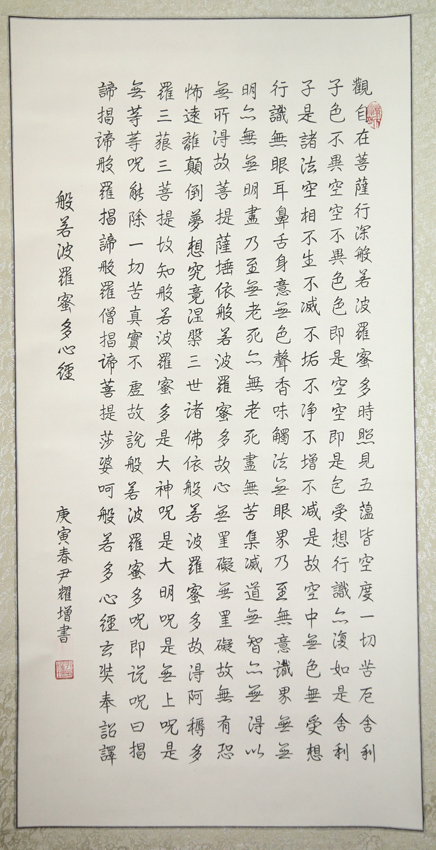 觀自在菩薩行深般若波羅蜜多時照見五蘊皆空度一切苦厄舍利
子色不異空空不異色色即是空空即是色受想行識亦復如是舍利
子是諸法空相不生不滅不垢不净不增不減是故空中無色無受想
行識無眼耳鼻舌身意無色聲香味觸法無眼界乃至無意識界無無
明亦無無明盡乃至無老死亦無老死盡無苦集滅道無智亦無得以
無所得故菩提薩埵依般若波羅蜜多故心無罣礙無罣礙故無有恐
怖遠離顛倒夢想究竟涅槃三世諸佛依般若波羅蜜多故得阿耨多
羅三藐三菩提故知般若波羅蜜多是大神呪是大明呪是無上呪是
無等等呪能除一切苦真實不虛故說般若波羅蜜多呪即说呪曰揭
諦揭諦般羅揭諦般羅僧揭諦菩提莎婆呵般若多心經玄奘奉詔譯
般若波羅蜜多心經
庚寅春尹耀增書